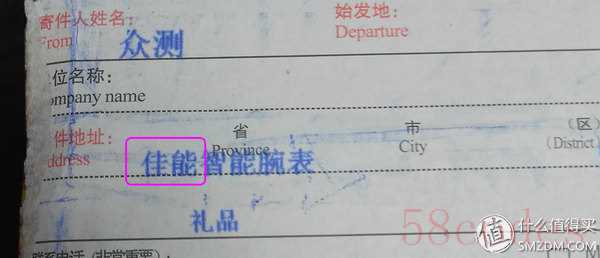 寄件人姓名: 始发地:
From 众测 Departure
位名称:
ompany name
件地址: 省 市 (区)
ddress Province City (District
佳能智能腕表
礼品
58c
联系电话 (非常重要):
值 什么值得买
SMZDM.COM